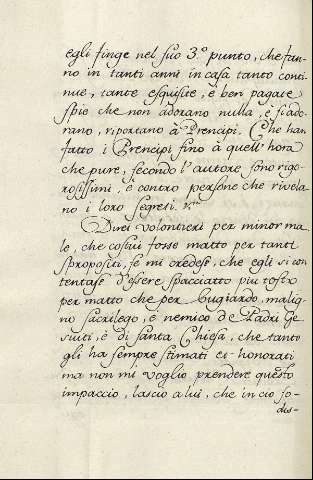 egli finge nel suo 3.º punto, che fan-
no in tanti anni in casa tanto conti
nue, tante esquisite, e ben pagate
spie che non adorano nulla, e s'ado-
rano, riportano à Prencipi. Che han
fatto i Prencipi fino à quell' hora
che pure, secondo l' autore sono rigo-
rosissimi, e contro persone che rivela
no i loro segreti.
Direi volontieri per minor ma-
le, che costui fosse matto per tanti
spropositi, se mi credese, che egli si con
tentase d'essere spacciatto piu tosto
per matto che per bugiardo, malig
no sacrilego, e nemico de Padri Ge
suiti, e di santa Chiesa, che tanto
gli ha sempre stimati et honorati
ma non mi voglio prendere questo
impaccio, lascio a lui, che in cio so-
dis-